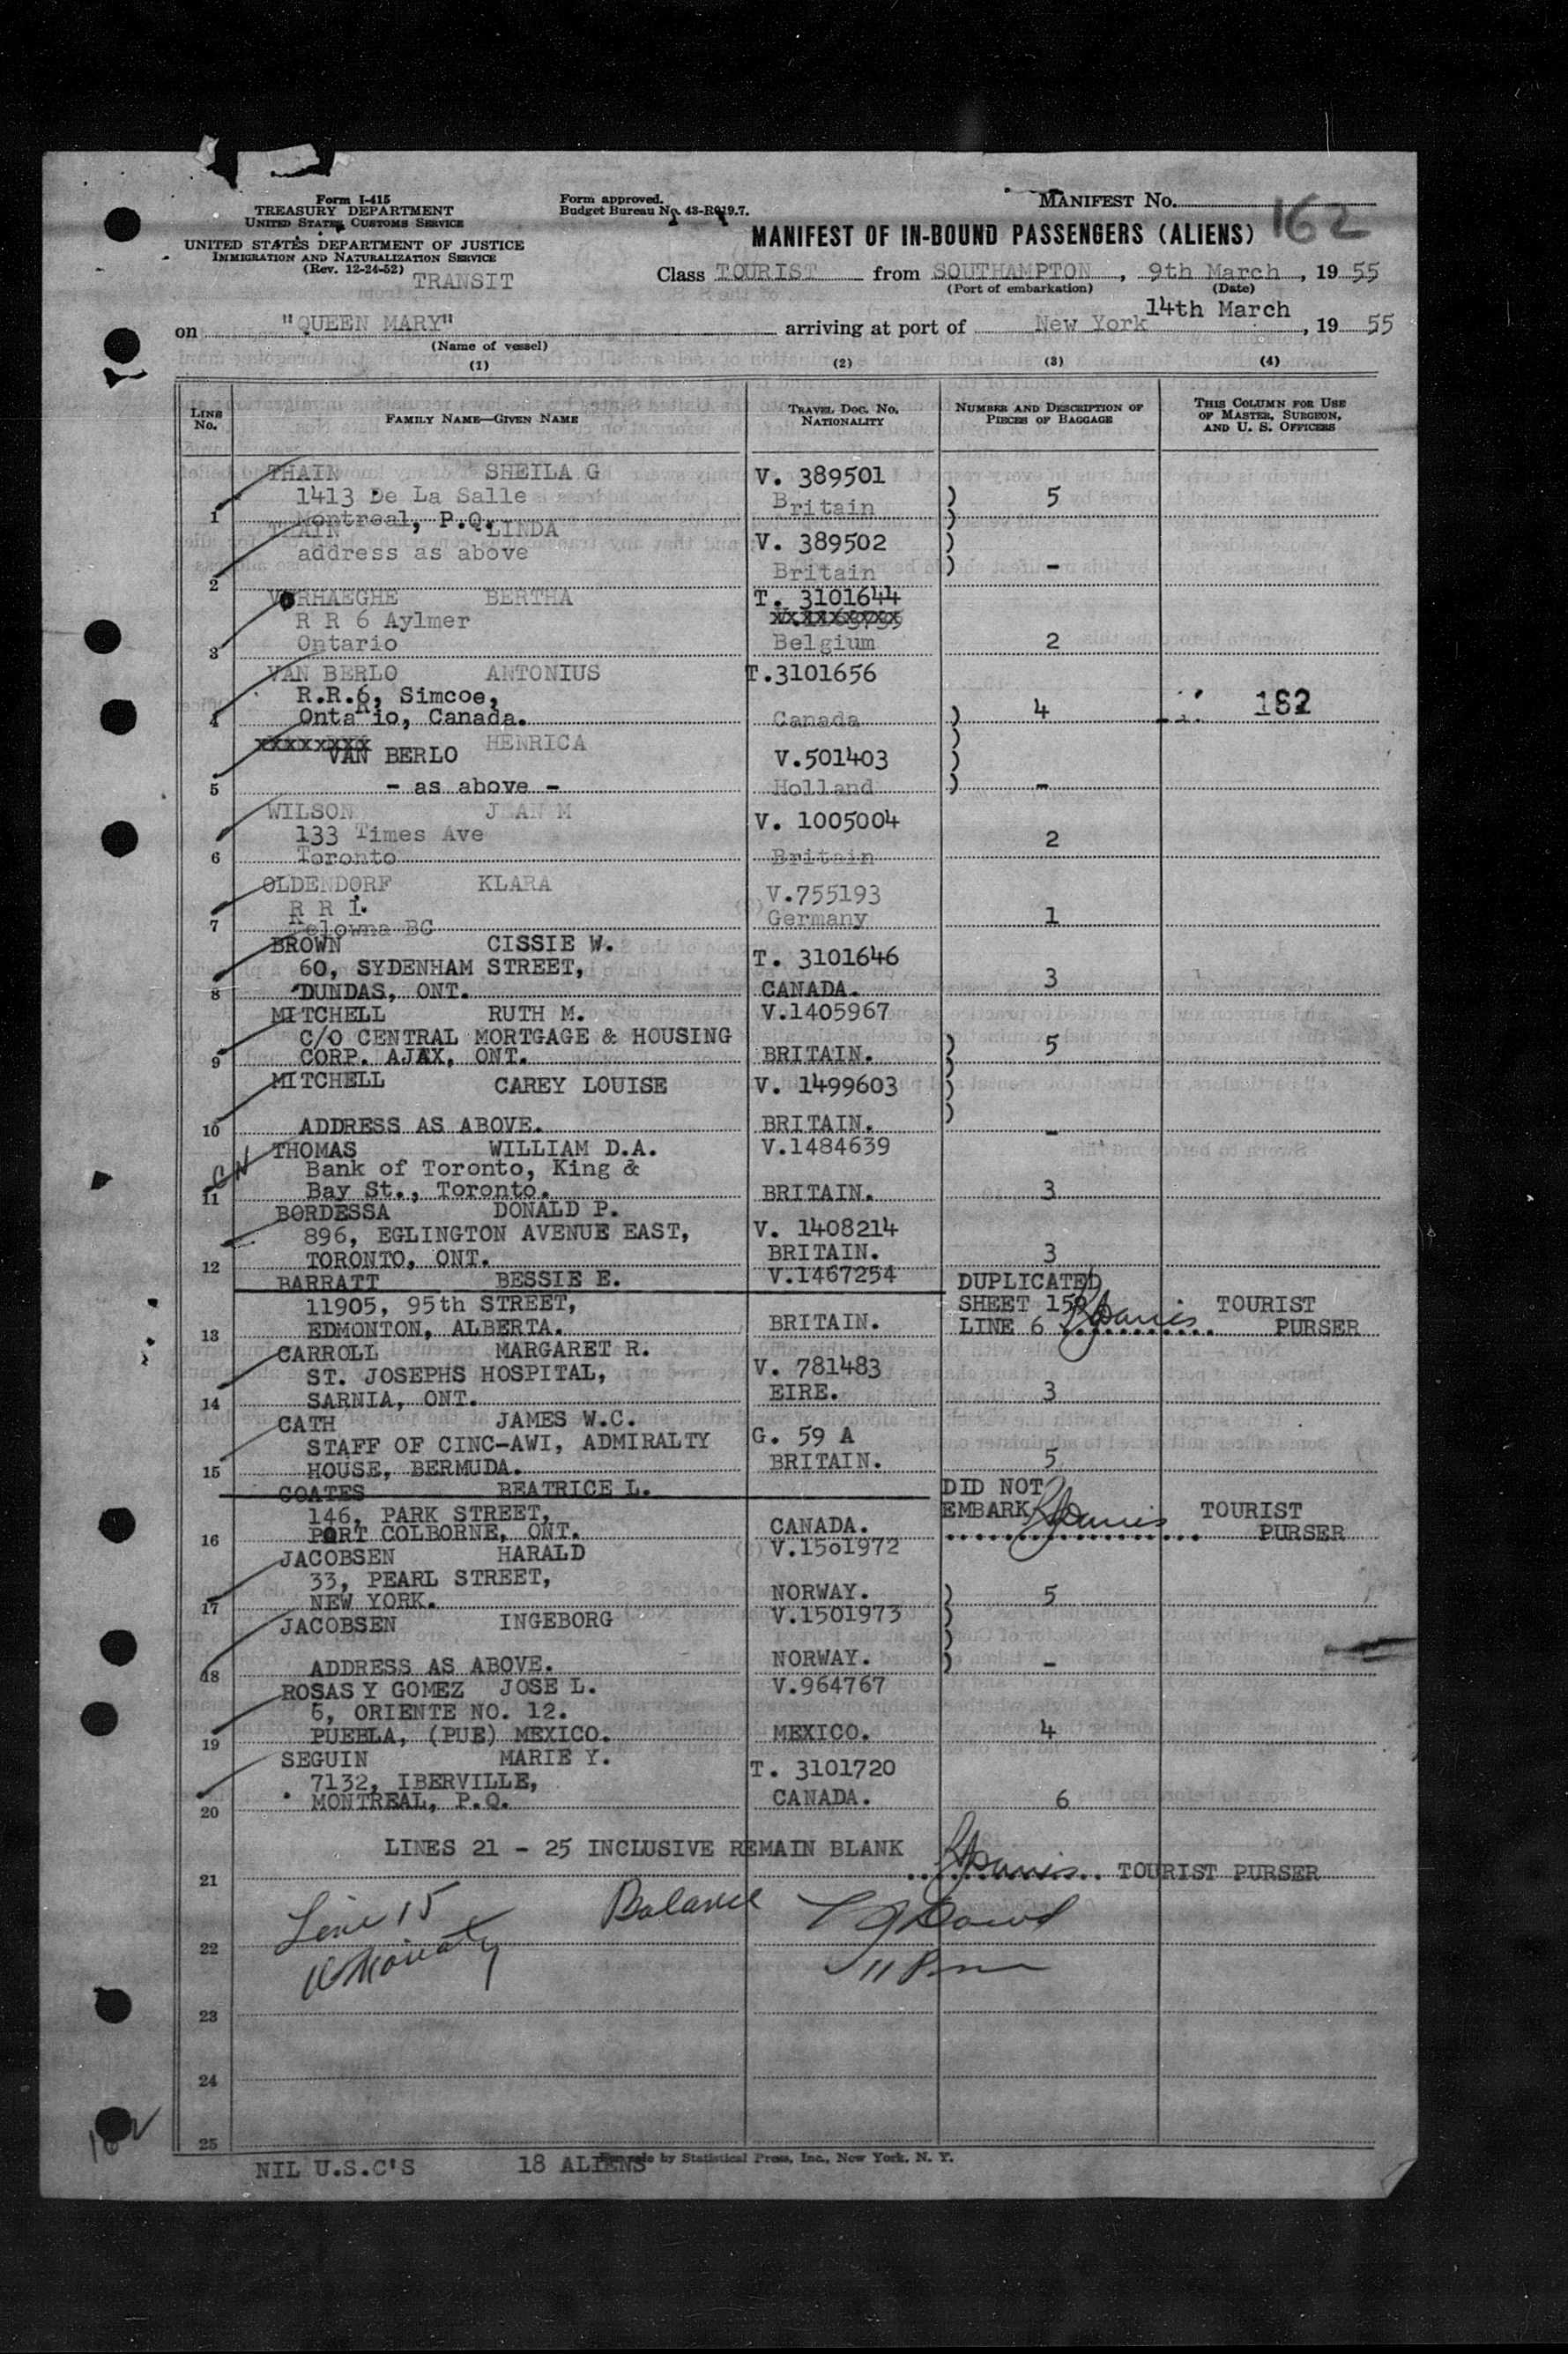 Form I-415
TREASURY DEPARTMENT
UNITED STATES CUSTOMS SERVICE
UNITED STATES DEPARTMENT OF JUSTICE
IMMIGRATION AND NATURALIZATION SERVICE
(Rev. 12-24-52)
TRANSIT
Form approved.
Budget Bureau No. 43-R019.7.
MANIFEST No.
162
MANIFEST OF IN-BOUND PASSENGERS (ALIENS)
Class TOURIST from SOUTHAMPTON, 9th March, 19 55
(Port of embarkation) (Date)
14th March
on "QUEEN MARY" arriving at port of New York, 19 55
(Name of vessel)
(1) (2) (3) (4)
LINE No. FAMILY NAME—GIVEN NAME TRAVEL DOC. NO. NATIONALITY NUMBER AND DESCRIPTION OF PIECES OF BAGGAGE THIS COLUMN FOR USE OF MASTER, SURGEON, AND U. S. OFFICERS
THAIN SHEILA G V. 389501
1413 De La Salle Britain ) 5
1 Montreal, P.Q. )
THAIN LINDA V. 389502 )
address as above Britain ) -
2
VERHAEGHE BERTHA T. 3101644
R R 6 Aylmer xxxxxxxxx
3 Ontario Belgium 2
VAN BERLO ANTONIUS T.3101656
R.R.6, Simcoe,
4 Ontario, Canada. Canada ) 4 162
xxxxxxxx HENRICA )
VAN BERLO V.501403 )
5 - as above - Holland ) -
WILSON JEAN M V. 1005004
133 Times Ave
6 Toronto Britain 2
OLDENDORF KLARA V.755193
R R 1.
7 Kelowna BC Germany 1
BROWN CISSIE W. T. 3101646
60, SYDENHAM STREET,
8 DUNDAS, ONT. CANADA. 3
MITCHELL RUTH M. V.1405967
C/O CENTRAL MORTGAGE & HOUSING
9 CORP. AJAX, ONT. BRITAIN. ) 5
MITCHELL CAREY LOUISE V. 1499603 )
10 ADDRESS AS ABOVE. BRITAIN. ) -
THOMAS WILLIAM D.A. V.1484639
Bank of Toronto, King &
11 Bay St., Toronto. BRITAIN. 3
BORDESSA DONALD P. V. 1408214
896, EGLINGTON AVENUE EAST,
12 TORONTO, ONT. BRITAIN. 3
BARRATT BESSIE E. V.1467254 DUPLICATED
11905, 95th STREET, SHEET 159 TOURIST
13 EDMONTON, ALBERTA. BRITAIN. LINE 6 PURSER
CARROLL MARGARET R. V. 781483
ST. JOSEPHS HOSPITAL,
14 SARNIA, ONT. EIRE. 3
CATH JAMES W.C. G. 59 A
STAFF OF CINC-AWI, ADMIRALTY
15 HOUSE, BERMUDA. BRITAIN. 5
COATES BEATRICE L. DID NOT
146, PARK STREET, EMBARK TOURIST
16 PORT COLBORNE, ONT. CANADA. PURSER
JACOBSEN HARALD V.1501972
33, PEARL STREET,
17 NEW YORK. NORWAY. ) 5
JACOBSEN INGEBORG V.1501973 )
18 ADDRESS AS ABOVE. NORWAY. ) -
ROSAS Y GOMEZ JOSE L. V.964767
5, ORIENTE NO. 12.
19 PUEBLA, (PUE) MEXICO. MEXICO. 4
SEGUIN MARIE Y. T. 3101720
7132, IBERVILLE,
20 MONTREAL, P.Q. CANADA. 6
LINES 21 - 25 INCLUSIVE REMAIN BLANK
21 TOURIST PURSER
Line 15 Balance
22
23
24
25
NIL U.S.C'S 18 ALIENS by Statistical Press, Inc., New York, N. Y.
162